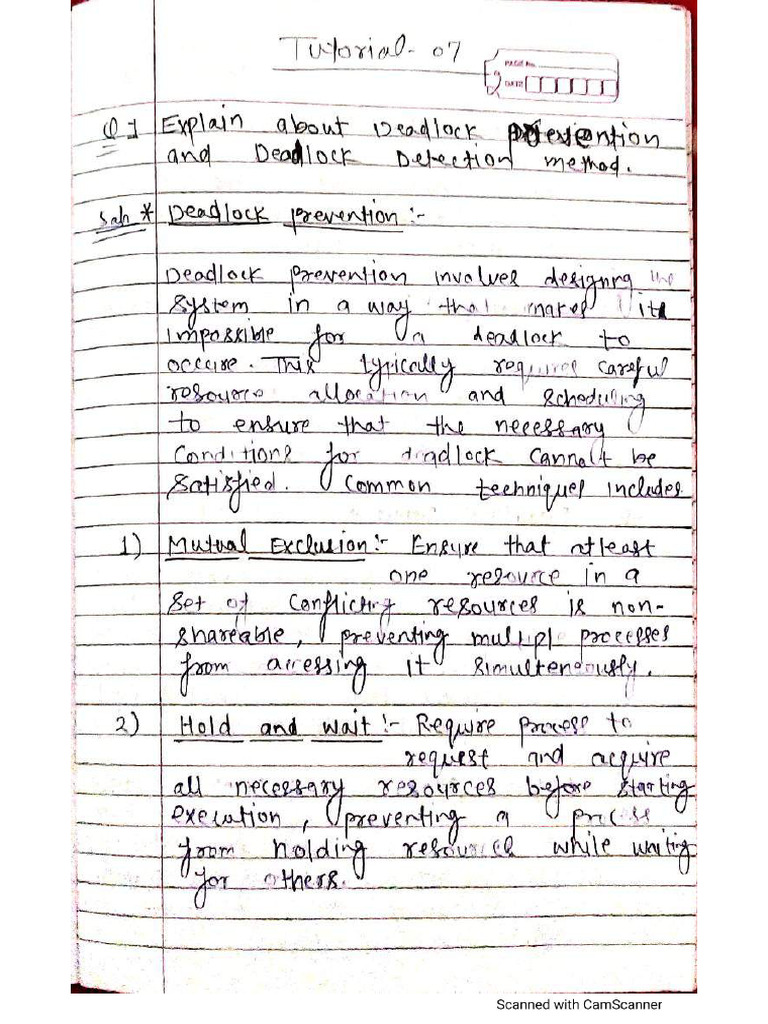 Tutorial- 07
PAGE No.
DATE
Q 1 Explain about Deadlock prevention
and Deadlock Detection method.
Soln * Deadlock prevention :-
Deadlock prevention involves designing the
system in a way that makes it
impossible for a deadlock to
occure. This typically requires careful
resource allocation and scheduling
to ensure that the necessary
conditions for deadlock cannot be
satisfied. Common techniques includes
1) Mutual Exclusion :- Ensure that atleast
one resource in a
set of conflicting resources is non-
shareable, preventing multiple processes
from accessing it simulteneously.
2) Hold and wait :- Require process to
request and acquire
all necessary resources before starting
execution, preventing a process
from holding resources while waiting
for others.
Scanned with CamScanner